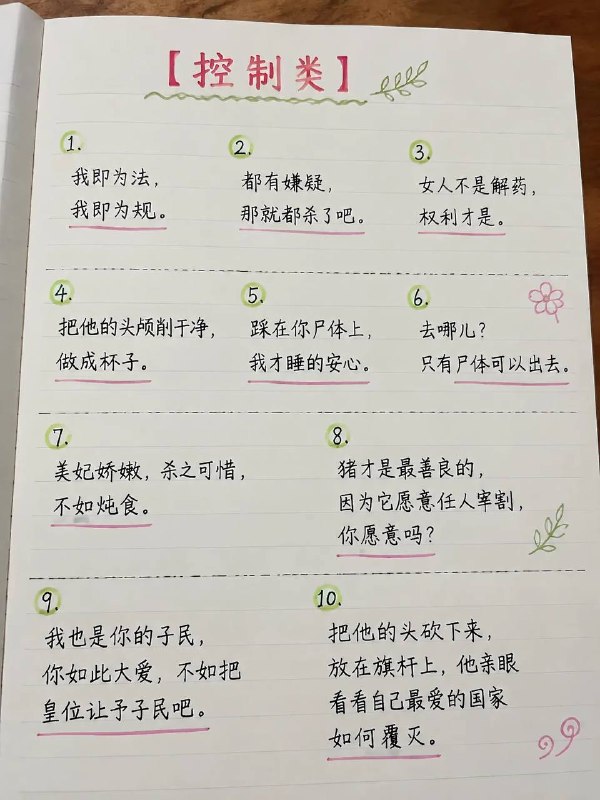 【控制类】
1.
我即为法，
我即为规。
2.
都有嫌疑，
那就都杀了吧。
3.
女人不是解药，
权利才是。
4.
把他的头颅削干净，
做成杯子。
5.
踩在你尸体上，
我才睡的安心。
6.
去哪儿？
只有尸体可以出去。
7.
美妃娇嫩，杀之可惜，
不如炖食。
8.
猪才是最善良的，
因为它愿意任人宰割，
你愿意吗？
9.
我也是你的子民，
你如此大爱，不如把
皇位让予子民吧。
10.
把他的头砍下来，
放在旗杆上，他亲眼
看看自己最爱的国家
如何覆灭。